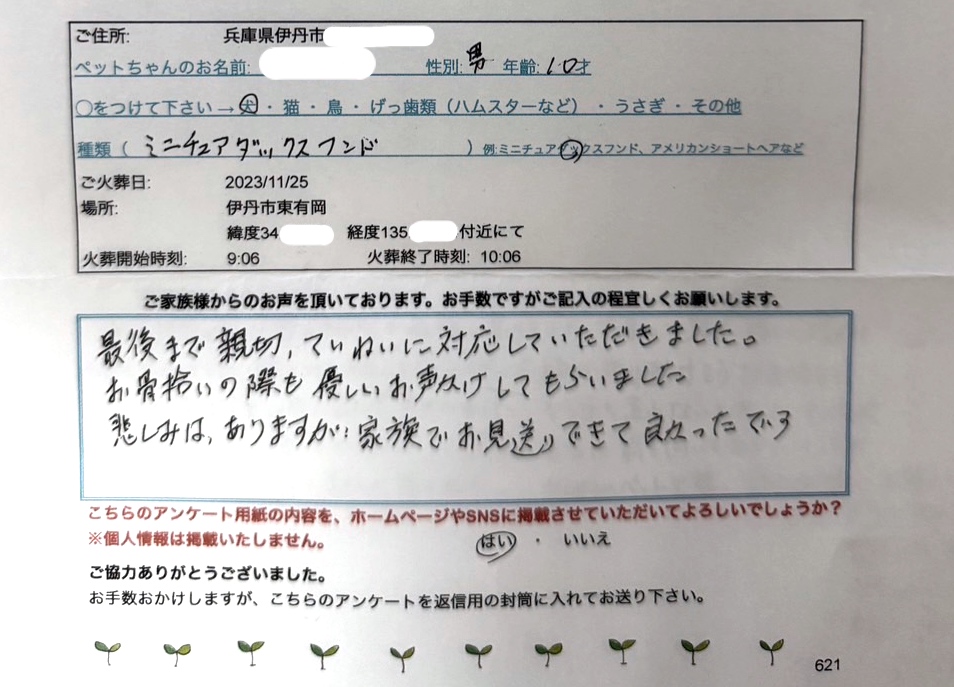 ご住所: 兵庫県伊丹市
ペットちゃんのお名前: 性別: 男 年齢: 10才
○をつけて下さい→ 犬・猫・鳥・げっ歯類（ハムスターなど）・うさぎ・その他
種類（ ミニチュアダックスフンド ）例:ミニチュアダックスフンド、アメリカンショートヘアなど
ご火葬日: 2023/11/25
場所: 伊丹市東有岡
緯度34 経度135 付近にて
火葬開始時刻: 9:06 火葬終了時刻: 10:06
ご家族様からのお声を頂いております。お手数ですがご記入の程宜しくお願いします。
最後まで親切、ていねいに対応していただきました。
お骨拾いの際も優しいお声がけしてもらいました
悲しみは、ありますが、家族でお見送りできて良かったです
こちらのアンケート用紙の内容を、ホームページやSNSに掲載させていただいてよろしいでしょうか？
※個人情報は掲載いたしません。 はい ・ いいえ
ご協力ありがとうございました。
お手数おかけしますが、こちらのアンケートを返信用の封筒に入れてお送り下さい。
621